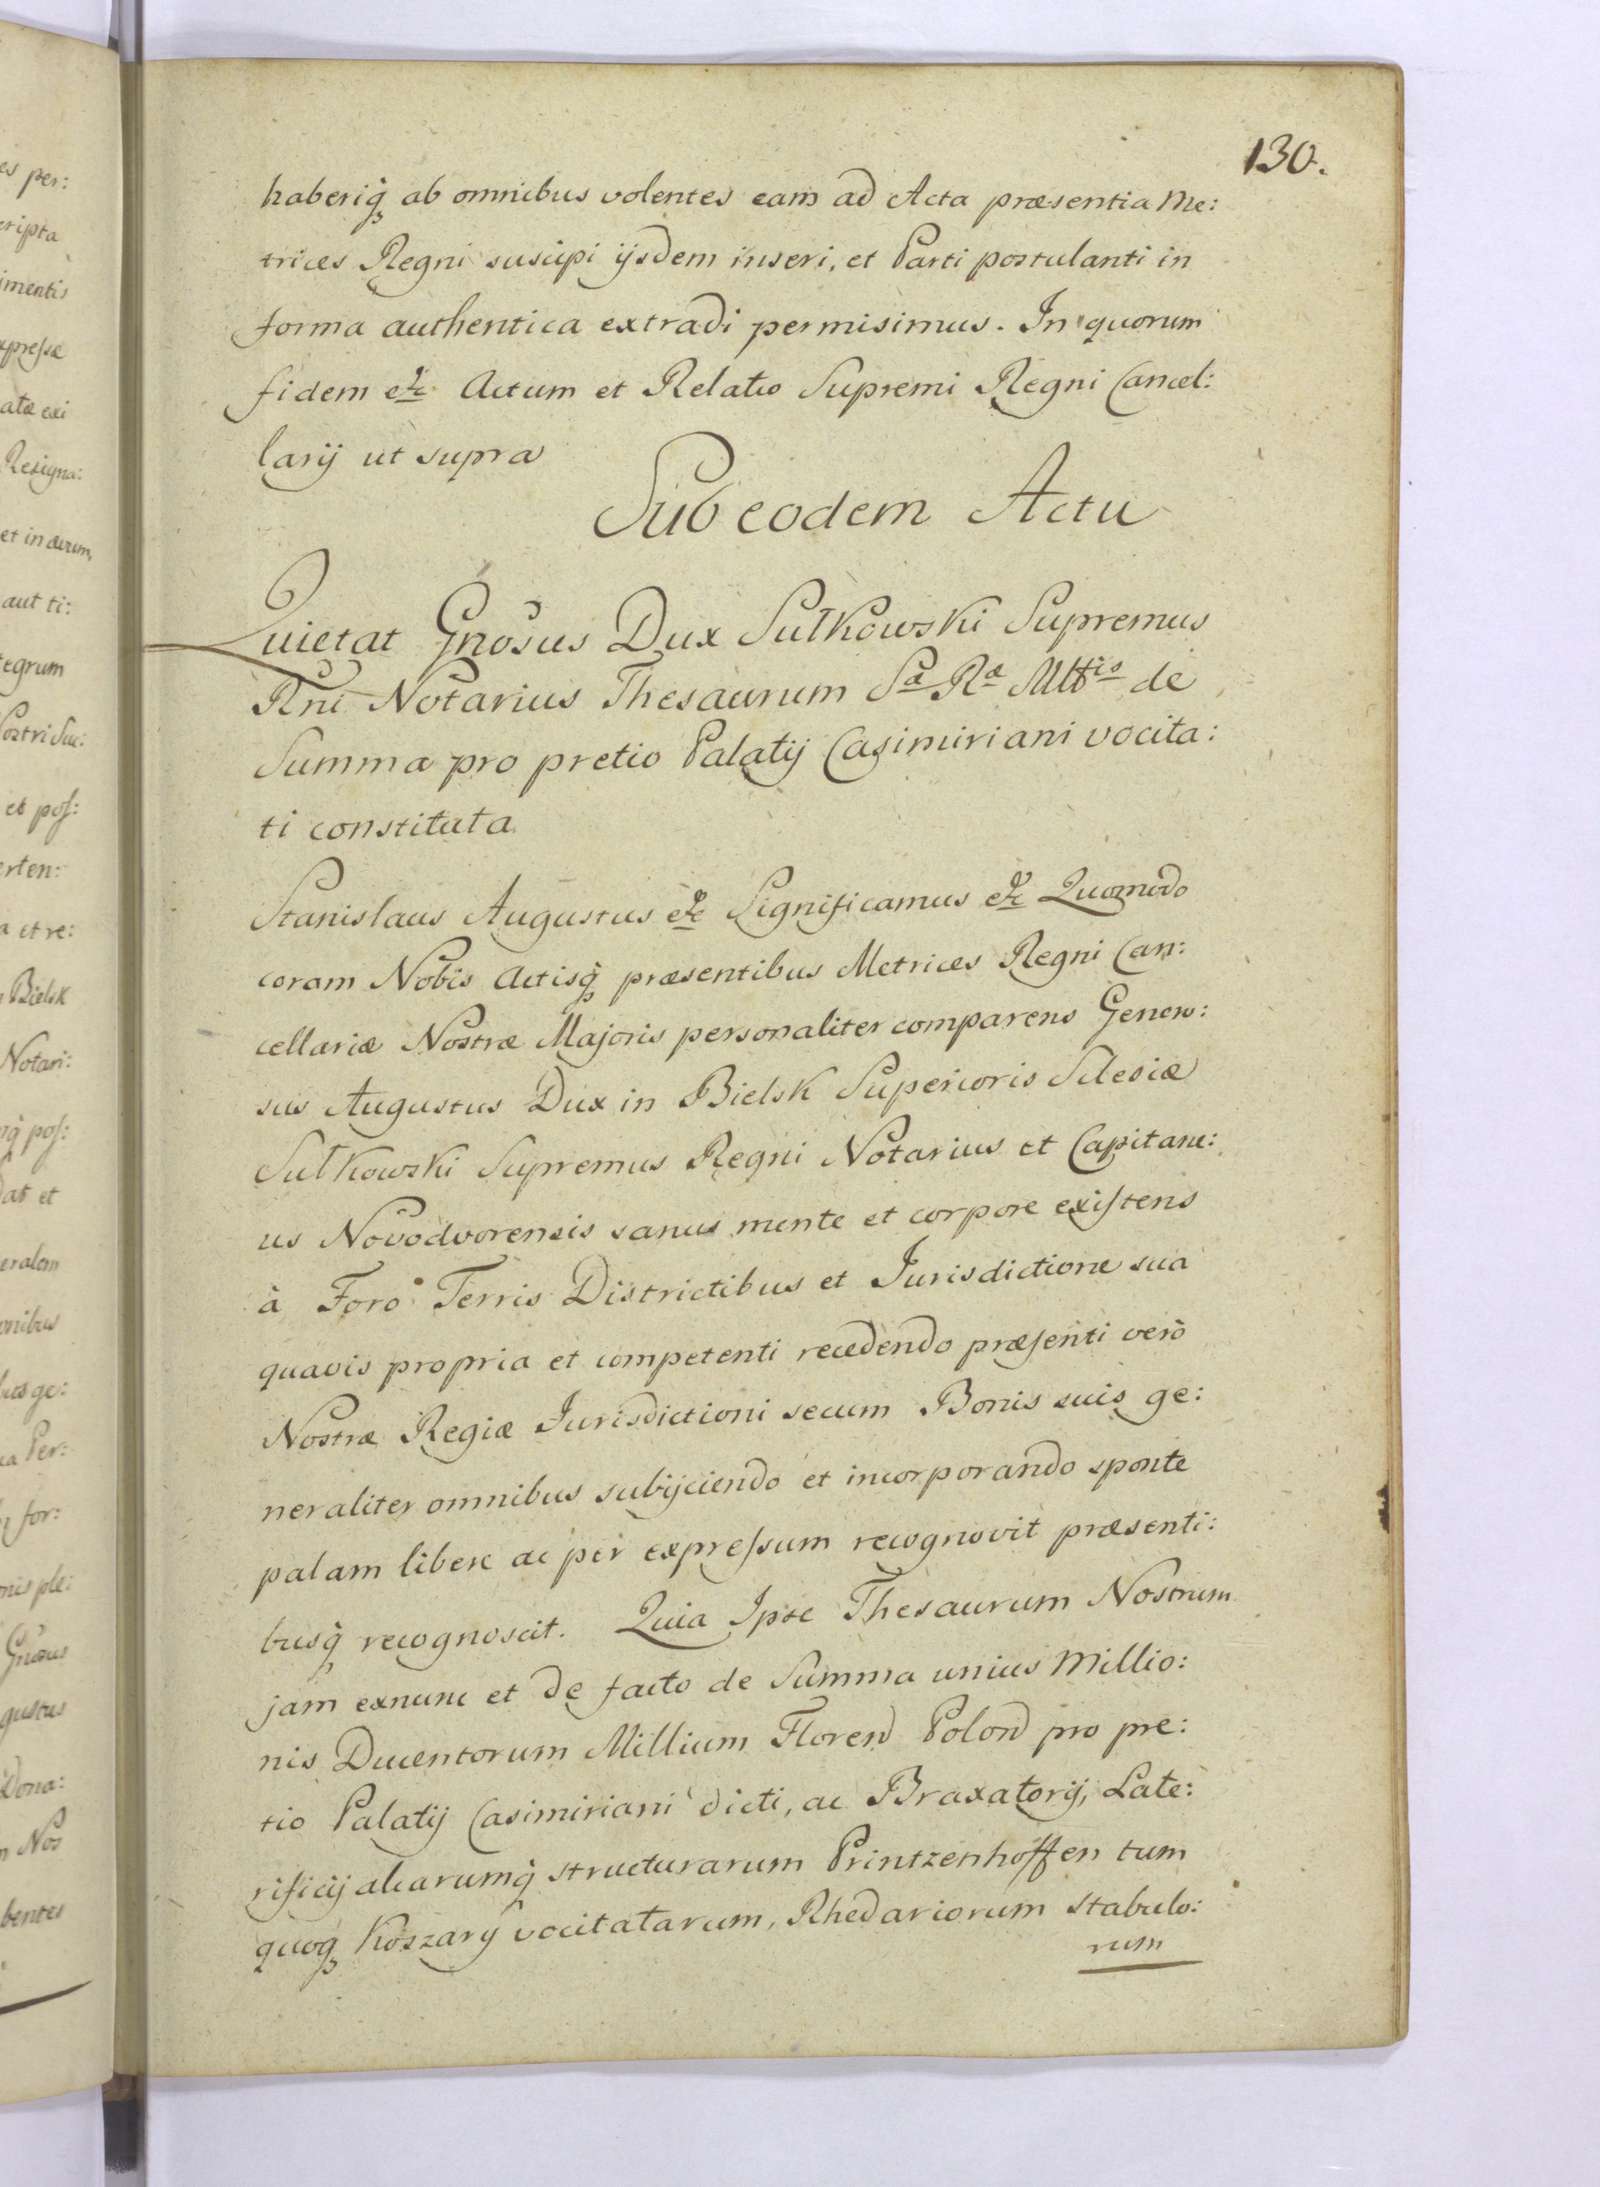 130.
haberiq̃ ab omnibus volentes eam ad Acta præsentia Me:
trices Regni suscipi ijsdem inseri, et Parti postulanti in
forma authentica extradi permisimus. In quorum
fidem etc Actum et Relatio Supremi Regni Cancel:
larij ut supra
Sub eodem Actu
Quietat Gnõsus Dux Sułkowski Supremus
Rni Notarius Thesaurum Sæ Ræ Mttis de
Summa pro pretio Palatij Casimiriani vocita:
ti constituta
Stanislaus Augustus etc Significamus etc Quomodo
coram Nobis Actisq̃ præsentibus Metrices Regni Can:
cellariæ Nostræ Majoris personaliter comparens Genero:
sus Augustus Dux in Bielsk Superioris Silesiæ
Sułkowski Supremus Regni Notarius et Capitane:
us Novodvorensis sanus mente et corpore existens
à Foro Terris Districtibus et Jurisdictione sua
quavis propria et competenti recedendo præsenti verò
Nostræ Regiæ Jurisdictioni secum Bonis suis ge:
neraliter omnibus subijciendo et incorporando sponte
palam libere ac per expressum recognovit præsenti:
busq̃ recognoscit. Quia Ipse Thesaurum Nostrum
jam exnunc et de facto de Summa unius Millio:
nis Ducentorum Millium Floren Polon pro pre:
tio Palatij Casimiriani dicti, ac Braxatorij, Late:
rificij aliarumq̃ structurarum Printzenhoffen tum
quoq̃ Koszary vocitatarum, Rhedariorum stabulo:
rum